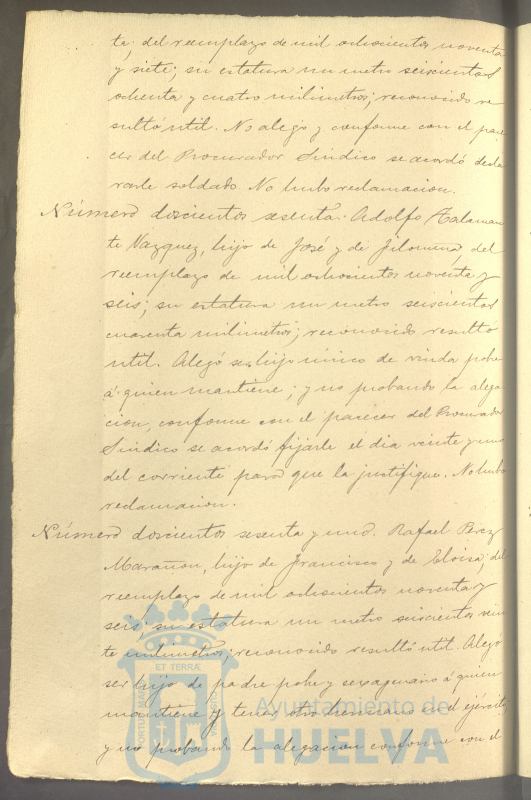 te; del reemplazo de mil ochocientos noventa
y siete; su estatura un metro seiscientos
ochenta y cuatro milimetros; reconocido re
sultó util. No alegó y conforme con el pare
cer del Procurador Sindico se acordó decla
rarle soldado. No hubo reclamacion.
Número doscientos sesenta. Adolfo Talaman
te Vazquez, hijo de José y de Filomena del
reemplazo de mil ochocientos noventa y
seis; su estatura un metro seiscientos
cuarenta milimetros; reconocido resultó
util. Alegó ser hijo único de viuda pobre
á quien mantiene; y no probando la alega
cion, conforme con el parecer del Procurador
Sindico se acordó fijarle el dia veinte y uno
del corriente para que la justifique. No hubo
reclamacion.
Número doscientos sesenta y uno. Rafael Perez
Marañon, hijo de Francisco y de Eloisa; del
reemplazo de mil ochocientos noventa y
seis; su estatura un metro seiscientos vein
te milimetros; reconocido resultó util. Alegó
ser hijo de padre pobre y sexagenario á quien
mantiene y tener otro hermano en el ejército,
y no probando la alegacion conforme con el
ET TERRÆ
Ayuntamiento de
HUELVA